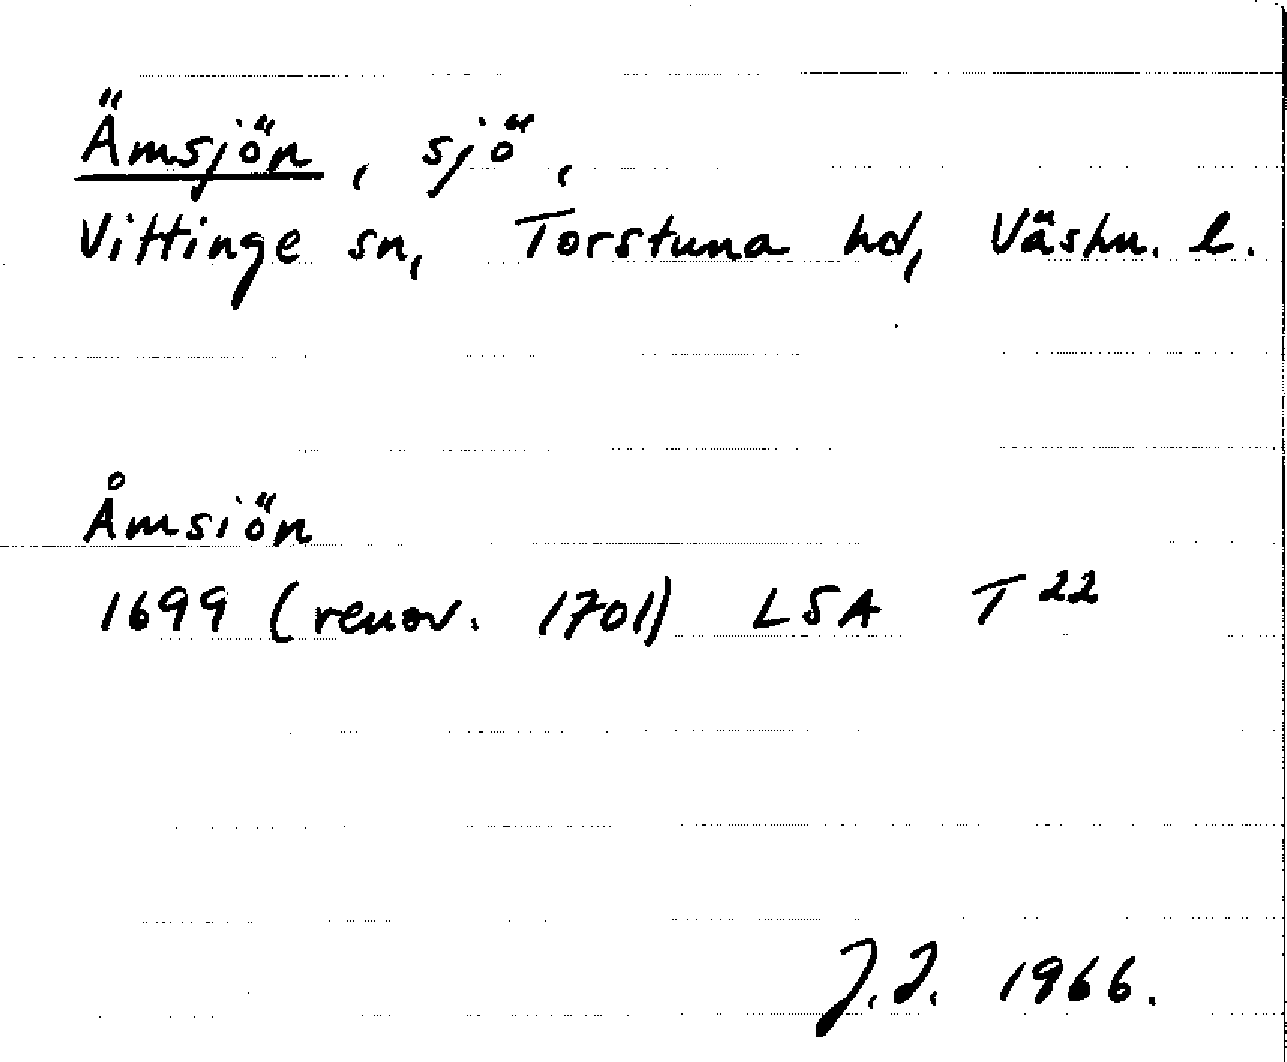 Ämsjön, sjö,
Vittinge sn, Torstuna hd, Västm. l.
Åmsiön
1699 (renov. 1701) LSA T 22
J.J. 1966.